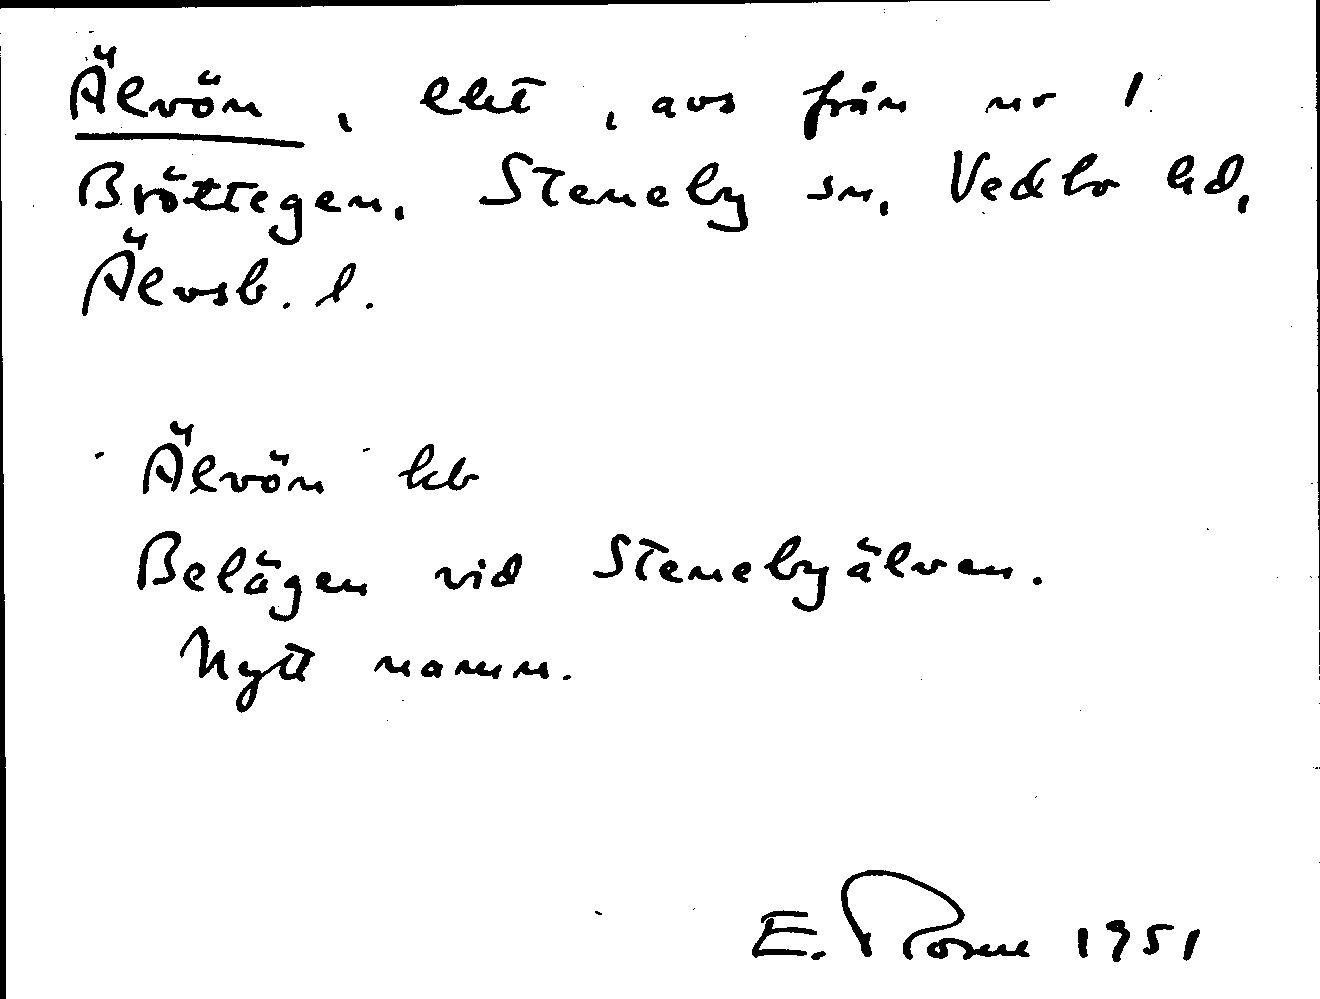 Älvön, lht, avs från nr 1
Bröttegen, Steneby sn, Vedbo hd,
Älvsb. l.
Älvön kb
Belägen vid Stenebyälven.
Nytt namn.
E. 1951